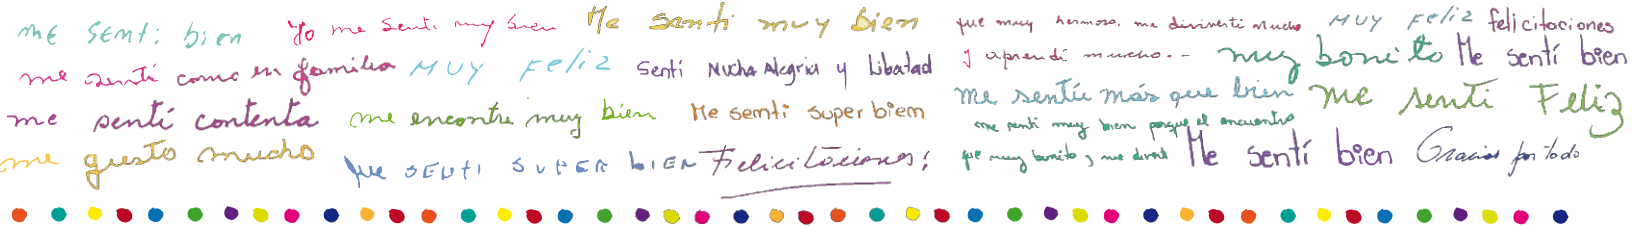 me sentí bien
Yo me senti muy bien
Me senti muy bien
fue muy hermoso, me diviverti mucho
y aprendí mucho...
MUY FELIZ
felicitaciones
me sentí como en familia
MUY FELIZ
Sentí Mucha Alegria y libatad
muy bonito
Me sentí bien
me sentí contenta
me encontre muy bien
Me semti super biem
me sentíu más que bien
me senti Feliz
me senti muy bien porque el encuentro
fue muy bonito, me diverti
me gusto mucho
SENTI SUPER bIEN
Felicitaciones!
Me sentí bien
Gracias por todo